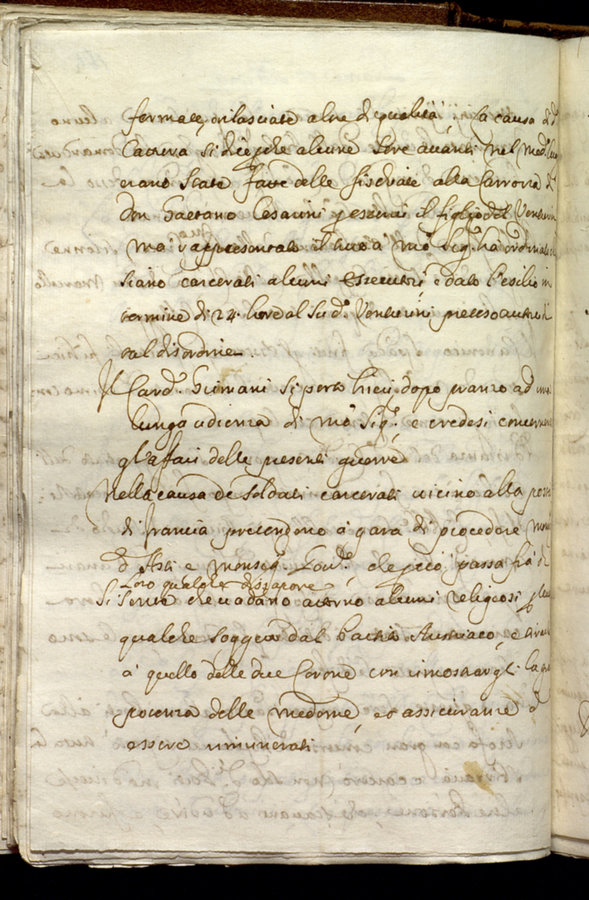 fermate, e rilasciate altre di qualità. La causa di d.
Carcera si dice, che alcune sere avanti nel med.
erano state fatte delle fischiate alla Carrozza di
Don Gaetano Cesarini, per esservi il figlio del Venturini
ma rappresentato il tutto a mo Sig. ha ordinato
siano carcerati alcuni essecutori, e dato l'esilio in
termine di 24 hore al Sud.o Venturini preteso autore di
tal disordine.
Il Card. Grimani si portò hieri dopo pranzo ad una
lunga udienza di mo Sig.e e credesi concernente
gl'afari delle presenti guerre
Nella causa de Soldati carcerati vicino alla porta
di francia pretendono à gara di procedere
d'Asti e monsig. che però passa frà di
Loro qualche dissapore
Si sente che vadano attorno alcuni religiosi per
qualche soggetto dal Partito Austriaco, e
à quello delle due Corone con rimostrargli la gran
potenza delle medeme, et assicurarne d'
essere rimunerati